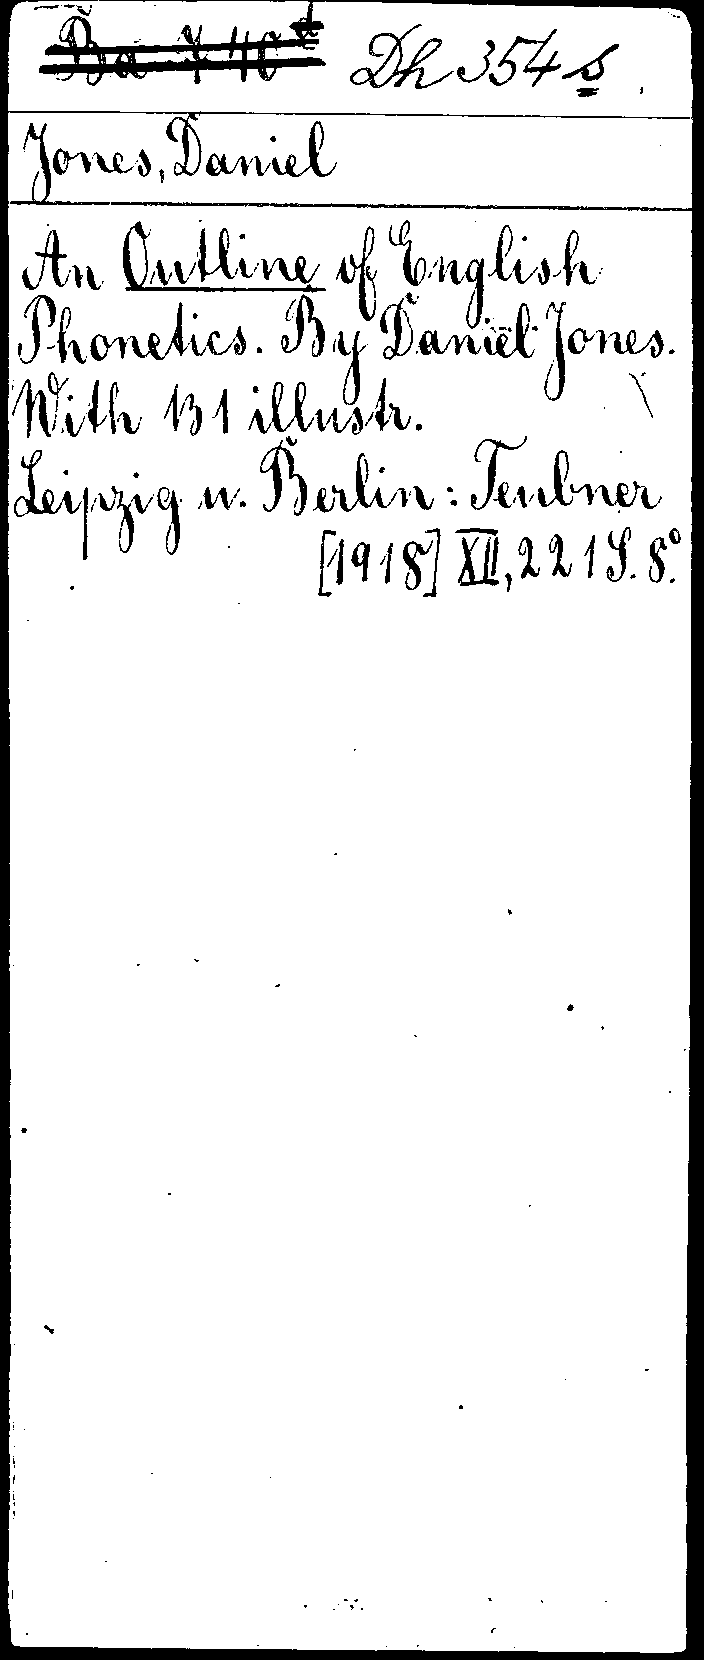 Ba 7 40 d Dh 354 s.
Jones, Daniel
An Outline of English
Phonetics. By Daniel Jones.
With 131 illustr.
Leipzig u. Berlin: Teubner
[1918] XII, 221 S. 8°.